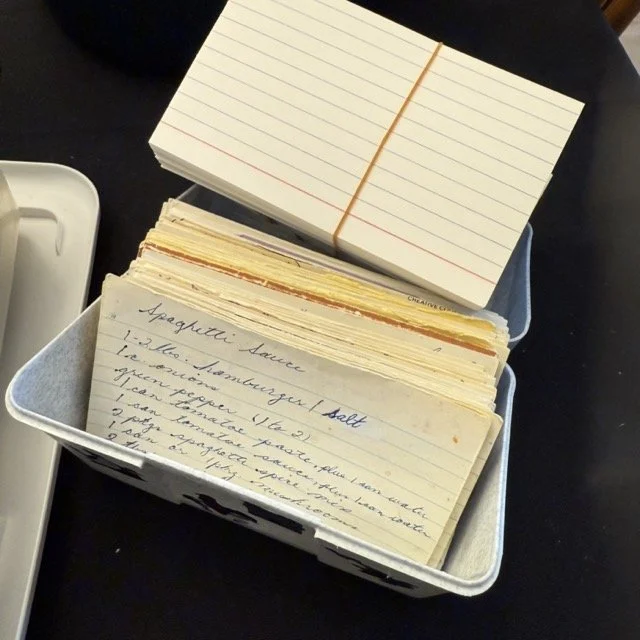 CREATIVE
Spaghetti Sauce
1-2 lbs. hamburger / salt
onions
green pepper (1 to 2)
1 can tomatoe paste, plus 1 can water
1 can tomatoe sauce, plus 1 can water
2 pkgs spaghetti
mushrooms